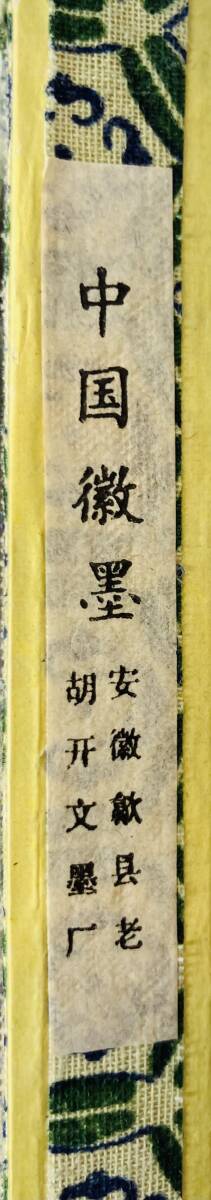 中国徽墨
安徽歙县老
胡开文墨厂